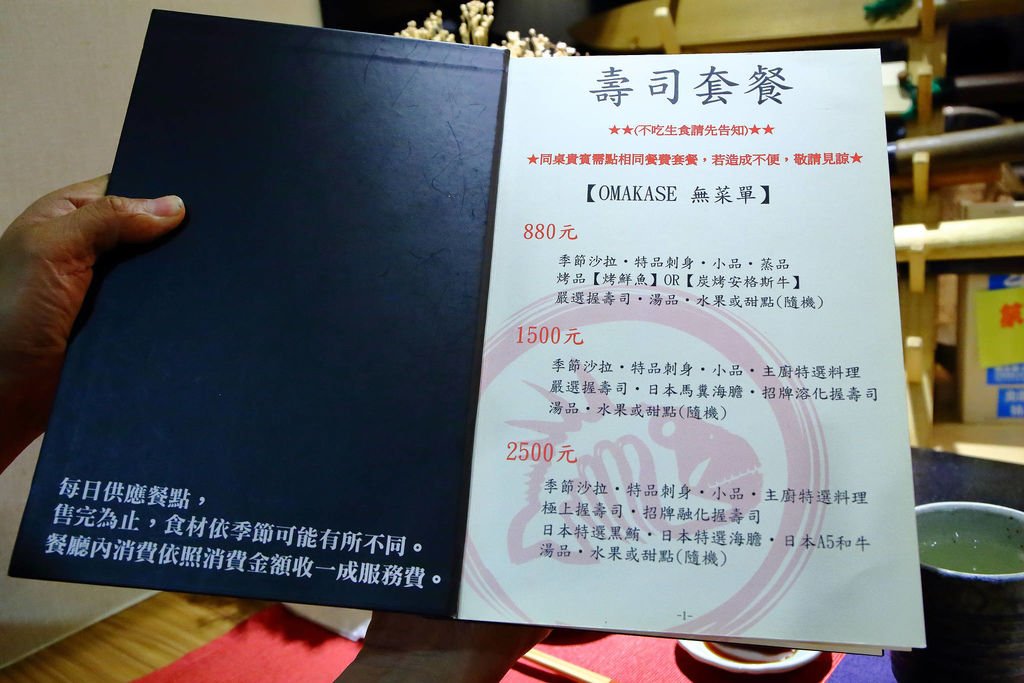 每日供應餐點，
售完為止，食材依季節可能有所不同。
餐廳內消費依照消費金額收一成服務費。
壽司套餐
★★(不吃生食請先告知)★★
★同桌貴賓需點相同餐費套餐，若造成不便，敬請見諒★
【OMAKASE 無菜單】
880元
季節沙拉・特品刺身・小品・蒸品
烤品【烤鮮魚】OR【炭烤安格斯牛】
嚴選握壽司・湯品・水果或甜點(隨機)
1500元
季節沙拉・特品刺身・小品・主廚特選料理
嚴選握壽司・日本馬糞海膽・招牌溶化握壽司
湯品・水果或甜點(隨機)
2500元
季節沙拉・特品刺身・小品・主廚特選料理
極上握壽司・招牌融化握壽司
日本特選黑鮪・日本特選海膽・日本A5和牛
湯品・水果或甜點(隨機)
-1-